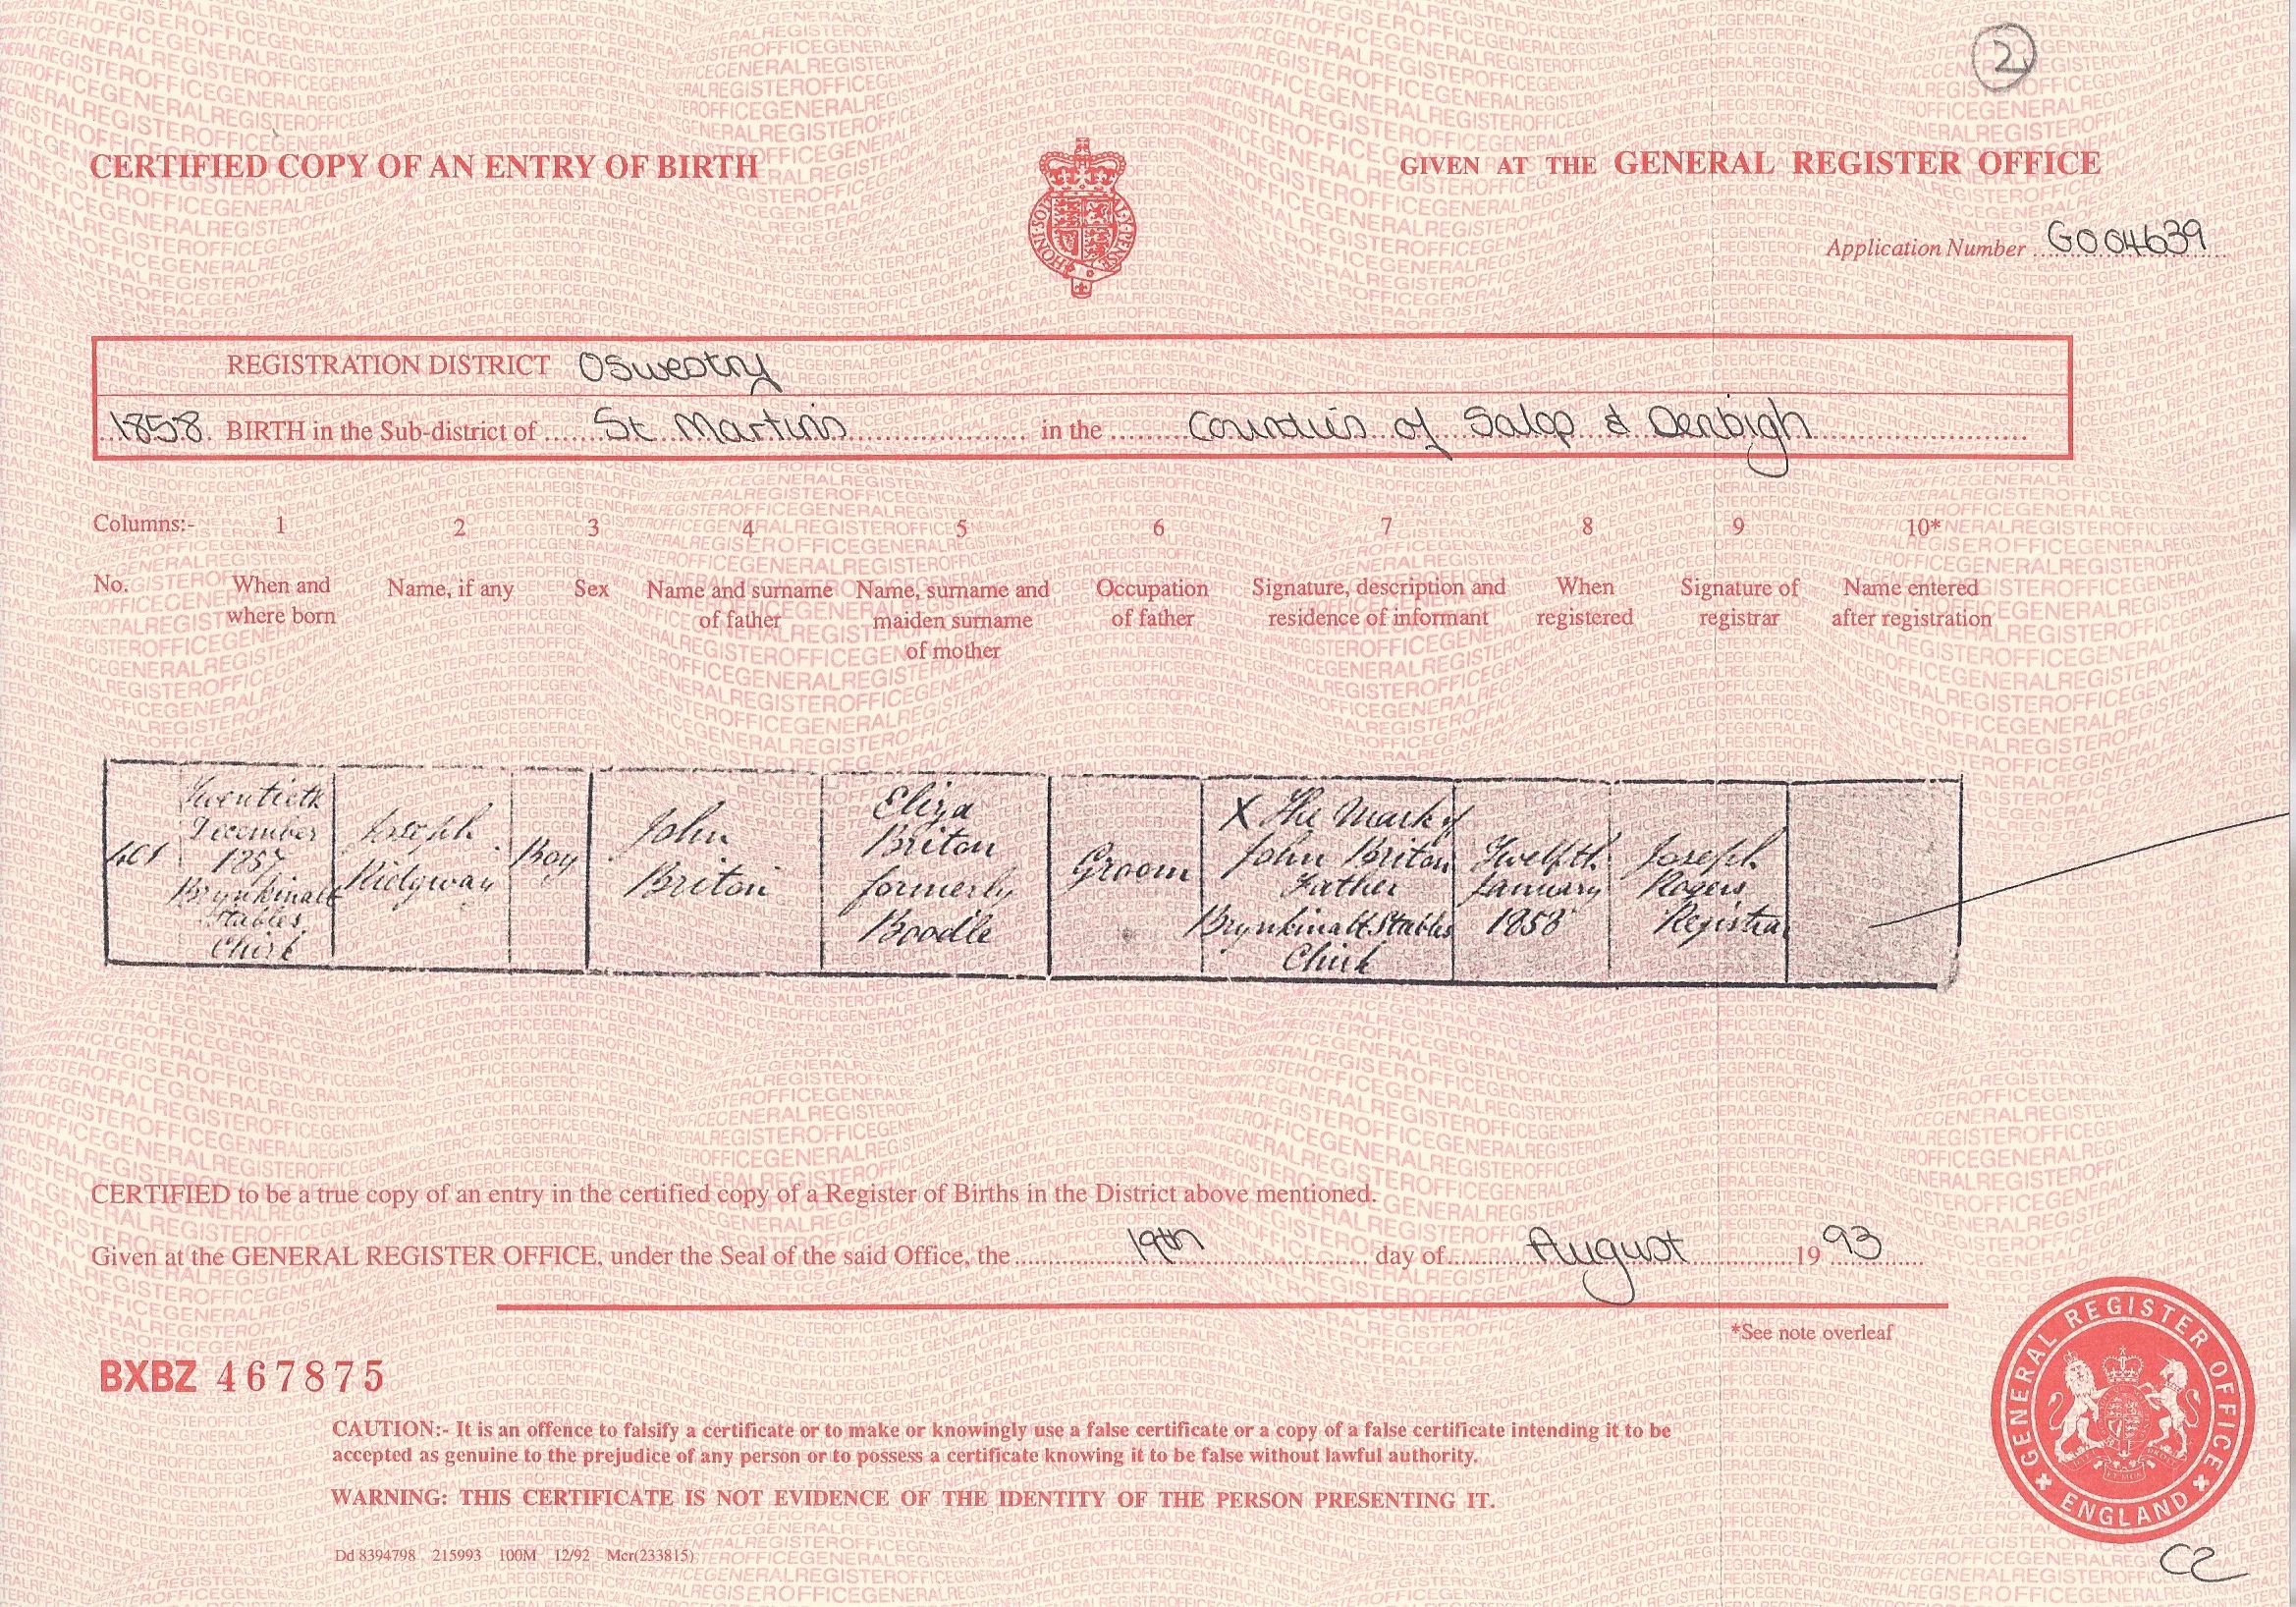 2
CERTIFIED COPY OF AN ENTRY OF BIRTH
GIVEN AT THE GENERAL REGISTER OFFICE
Application Number G004639
REGISTRATION DISTRICT Oswestry
1858 BIRTH in the Sub-district of St Martins in the Counties of Salop & Denbigh
Columns:- 1 2 3 4 5 6 7 8 9 10*
No.
When and
where born
Name, if any
Sex
Name and surname
of father
Name, surname and
maiden surname
of mother
Occupation
of father
Signature, description and
residence of informant
When
registered
Signature of
registrar
Name entered
after registration
401
Twentieth
December
1857
Brynkinalt
Stables
Chirk
Joseph
Ridgway
Boy
John
Briton
Eliza
Briton
formerly
Boodle
Groom
X The Mark of
John Briton
Father
Brynkinalt Stables
Chirk
Twelfth
January
1858
Joseph
Rogers
Registrar
CERTIFIED to be a true copy of an entry in the certified copy of a Register of Births in the District above mentioned.
Given at the GENERAL REGISTER OFFICE, under the Seal of the said Office, the 19th day of August 1993
*See note overleaf
BXBZ 467875
CAUTION:- It is an offence to falsify a certificate or to make or knowingly use a false certificate or a copy of a false certificate intending it to be
accepted as genuine to the prejudice of any person or to possess a certificate knowing it to be false without lawful authority.
WARNING: THIS CERTIFICATE IS NOT EVIDENCE OF THE IDENTITY OF THE PERSON PRESENTING IT.
Dd 8394798 215993 100M 12/92 Mcr(233815)
GENERAL REGISTER OFFICE
ENGLAND